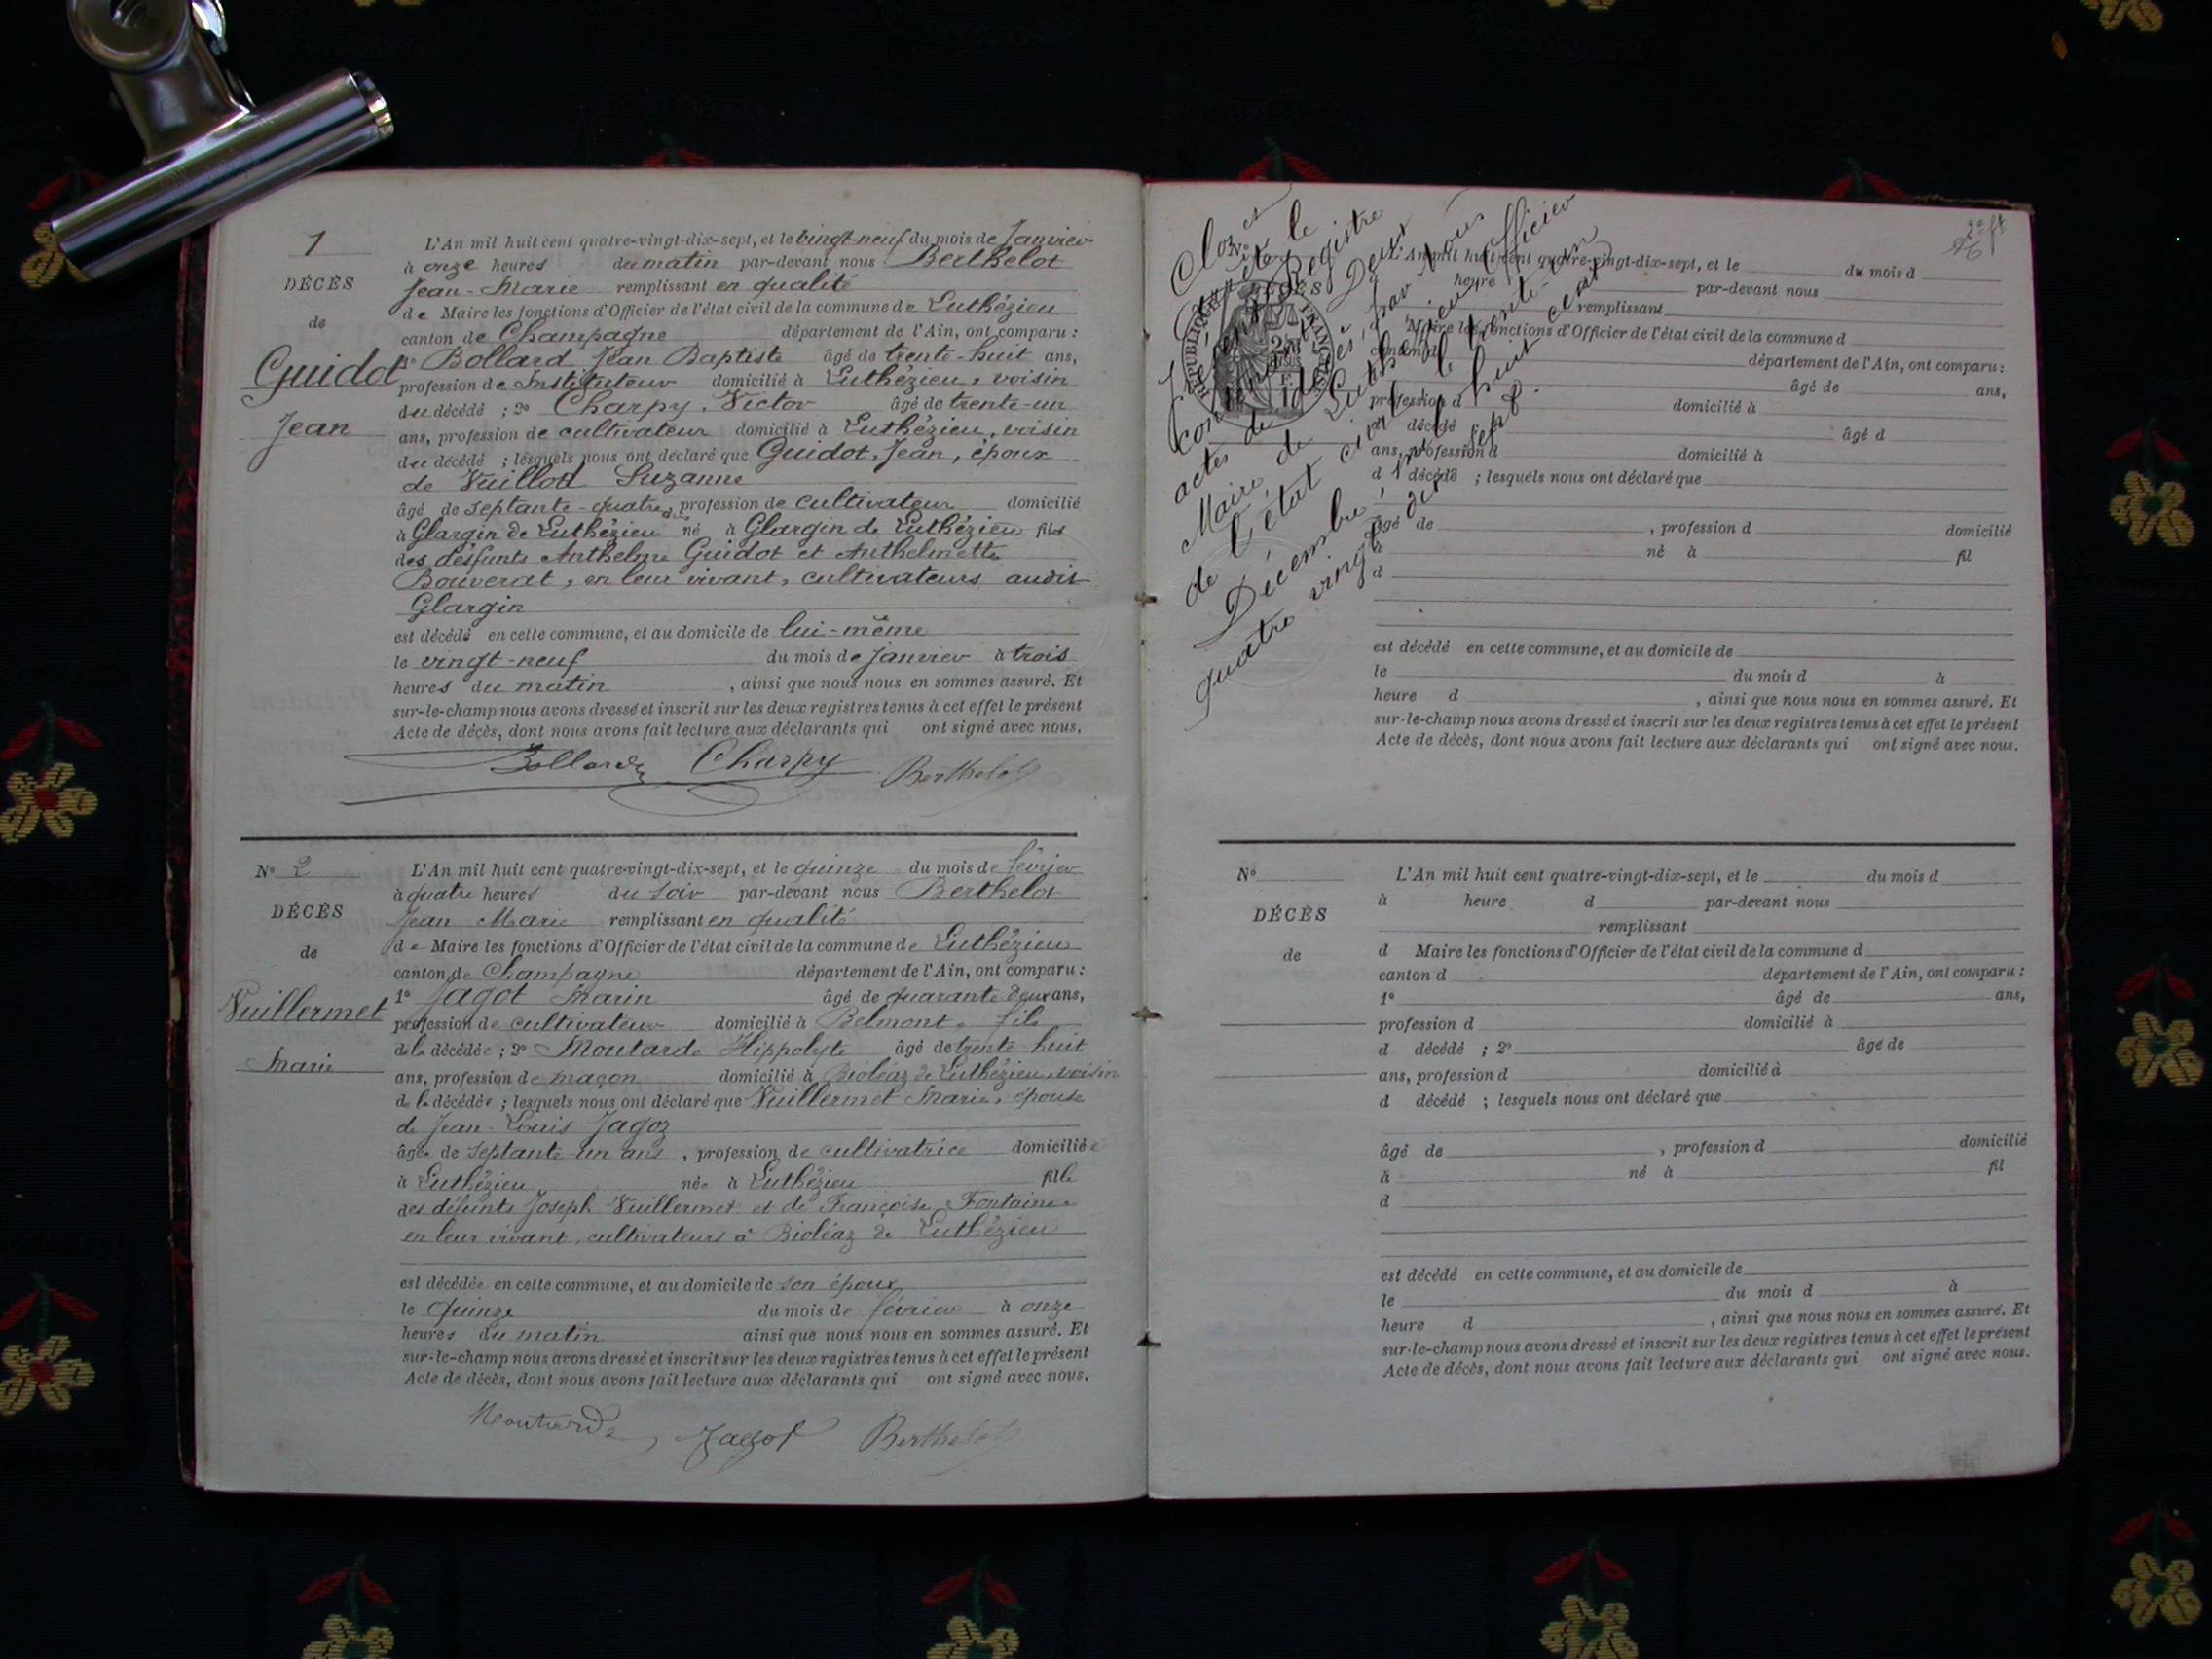 1
DÉCÈS
de
Guidot
Jean
L'An mil huit cent quatre-vingt-dix-sept, et le vingt-neuf du mois de Janvier
à onze heures du matin par-devant nous Berthelot
Jean-Marie remplissant en qualité
de Maire les fonctions d'Officier de l'état civil de la commune de Luthézieu
canton de Champagne département de l'Ain, ont comparu :
1º Bollard Jean Baptiste âgé de trente-huit ans,
profession de Instituteur domicilié à Luthézieu, voisin
du décédé ; 2º Charpy, Victor âgé de trente-un
ans, profession de cultivateur domicilié à Luthézieu, voisin
du décédé ; lesquels nous ont déclaré que Guidot, Jean, époux
de Vuillod Suzanne
âgé de septante-quatre, profession de cultivateur domicilié
à Glargin de Luthézieu né à Glargin de Luthézieu fils
des défunts Anthelme Guidot et Anthelmette
Bouverat, en leur vivant, cultivateurs audit
Glargin
est décédé en cette commune, et au domicile de lui-même
le vingt-neuf du mois de janvier à trois
heures du matin, ainsi que nous nous en sommes assuré. Et
sur-le-champ nous avons dressé et inscrit sur les deux registres tenus à cet effet le présent
Acte de décès, dont nous avons fait lecture aux déclarants qui ont signé avec nous.
Bollard Charpy Berthelot
Nº 2
DÉCÈS
de
Vuillermet
Marie
L'An mil huit cent quatre-vingt-dix-sept, et le quinze du mois de février
à quatre heures du soir par-devant nous Berthelot
Jean Marie remplissant en qualité
de Maire les fonctions d'Officier de l'état civil de la commune de Luthézieu
canton de Champagne département de l'Ain, ont comparu :
1º Jagot Marin âgé de quarante deux ans,
profession de cultivateur domicilié à Belmont, fils
de la décédée ; 2º Moutarde Hippolyte âgé de trente huit
ans, profession de maçon domicilié à Bioléaz de Luthézieu, voisin
de la décédée ; lesquels nous ont déclaré que Vuillermet Marie, épouse
de Jean-Louis Jagoz
âgée de septante-un ans, profession de cultivatrice domiciliée
à Luthézieu née à Luthézieu fille
des défunts Joseph Vuillermet et de Françoise Fontaine
en leur vivant, cultivateurs à Bioléaz de Luthézieu
est décédée en cette commune, et au domicile de son époux
le quinze du mois de février à onze
heures du matin ainsi que nous nous en sommes assuré. Et
sur-le-champ nous avons dressé et inscrit sur les deux registres tenus à cet effet le présent
Acte de décès, dont nous avons fait lecture aux déclarants qui ont signé avec nous.
Moutarde, Jagot Berthelot
Clos et
arrêté le
présent Registre
contenant Deux
actes de décès, par nous
Maire de Luthézieu, Officier
de l'état civil le trente-un
Décembre mil huit cent
quatre vingt dix sept.
RÉPUBLIQUE FRANÇAISE
L'An mil huit cent quatre-vingt-dix-sept, et le du mois d
heure par-devant nous
remplissant
Maire les fonctions d'Officier de l'état civil de la commune d
canton d département de l'Ain, ont comparu :
âgé de ans,
profession d domicilié à
décédé âgé d
ans, profession d domicilié à
d décédé ; lesquels nous ont déclaré que
âgé de , profession d domicilié
à né à fil
d
est décédé en cette commune, et au domicile de
le du mois d à
heure d , ainsi que nous nous en sommes assuré. Et
sur-le-champ nous avons dressé et inscrit sur les deux registres tenus à cet effet le présent
Acte de décès, dont nous avons fait lecture aux déclarants qui ont signé avec nous.
Nº
DÉCÈS
de
L'An mil huit cent quatre-vingt-dix-sept, et le du mois d
à heure d par-devant nous
remplissant
d Maire les fonctions d'Officier de l'état civil de la commune d
canton d département de l'Ain, ont comparu :
1º âgé de ans,
profession d domicilié à
d décédé ; 2º âgé de
ans, profession d domicilié à
d décédé ; lesquels nous ont déclaré que
âgé de , profession d domicilié
à né à fil
d
est décédé en cette commune, et au domicile de
le du mois d à
heure d , ainsi que nous nous en sommes assuré. Et
sur-le-champ nous avons dressé et inscrit sur les deux registres tenus à cet effet le présent
Acte de décès, dont nous avons fait lecture aux déclarants qui ont signé avec nous.